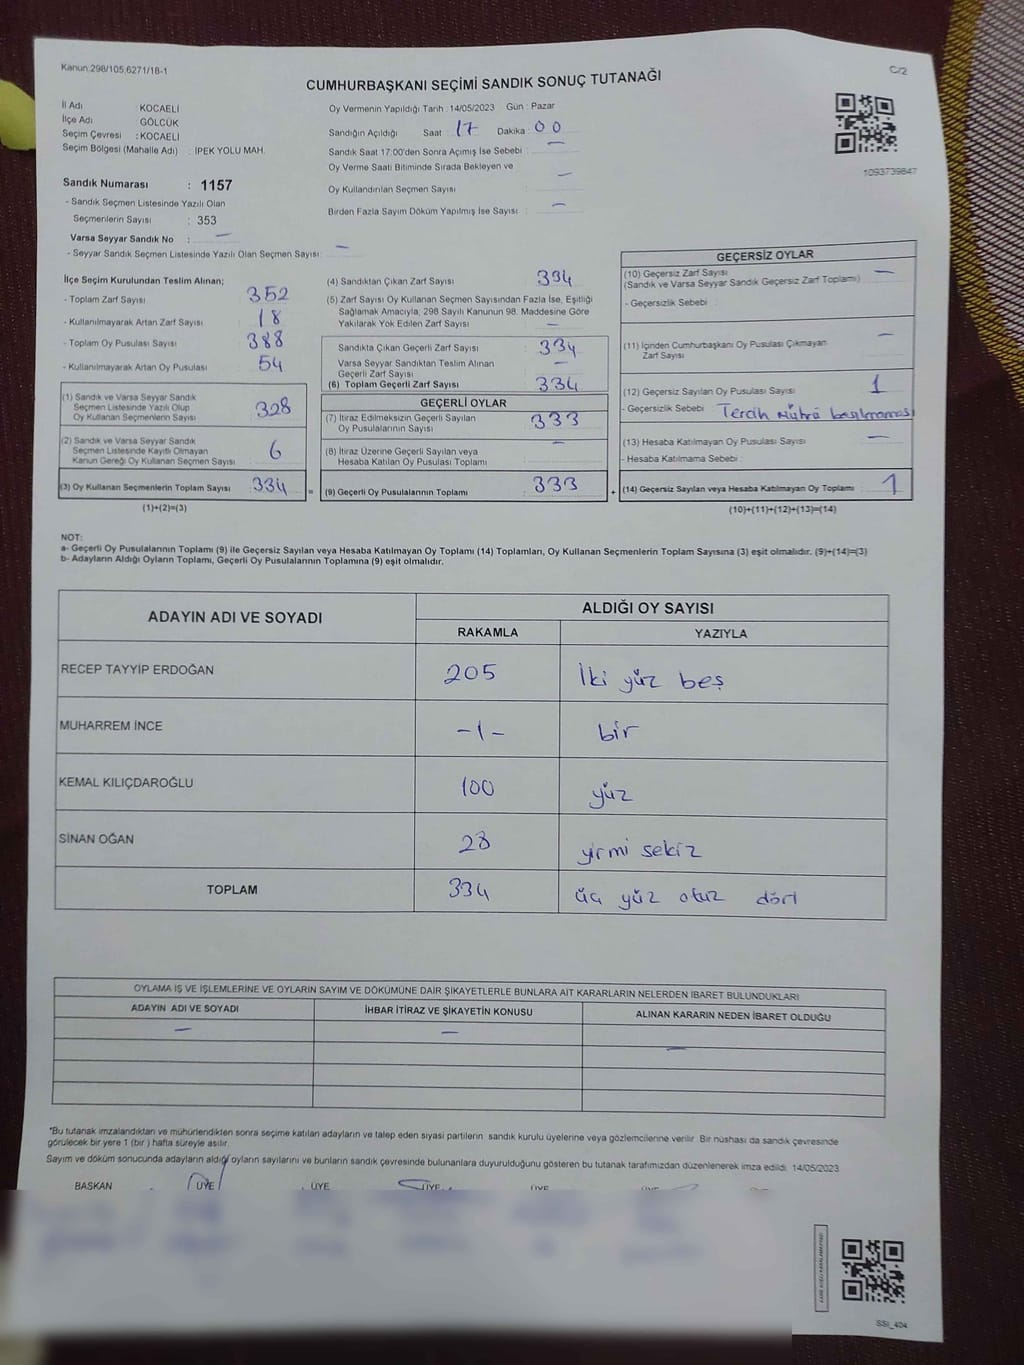 Kanun:298/105,6271/18-1
C/2
CUMHURBAŞKANI SEÇİMİ SANDIK SONUÇ TUTANAĞI
İl Adı : KOCAELİ
İlçe Adı : GÖLCÜK
Seçim Çevresi : KOCAELİ
Seçim Bölgesi (Mahalle Adı) : İPEK YOLU MAH.
Sandık Numarası : 1157
- Sandık Seçmen Listesinde Yazılı Olan
Seçmenlerin Sayısı : 353
Varsa Seyyar Sandık No : —
- Seyyar Sandık Seçmen Listesinde Yazılı Olan Seçmen Sayısı: —
Oy Vermenin Yapıldığı Tarih : 14/05/2023 Gün : Pazar
Sandığın Açıldığı Saat : 17 Dakika : 00
Sandık Saat 17:00'den Sonra Açımış İse Sebebi : —
Oy Verme Saati Bitiminde Sırada Bekleyen ve
Oy Kullandırılan Seçmen Sayısı : —
Birden Fazla Sayım Döküm Yapılmış İse Sayısı : —
1093739847
İlçe Seçim Kurulundan Teslim Alınan;
- Toplam Zarf Sayısı : 352
- Kullanılmayarak Artan Zarf Sayısı : 18
- Toplam Oy Pusulası Sayısı : 388
- Kullanılmayarak Artan Oy Pusulası : 54
(1) Sandık ve Varsa Seyyar Sandık
Seçmen Listesinde Yazılı Olup
Oy Kullanan Seçmenlerin Sayısı : 328
(2) Sandık ve Varsa Seyyar Sandık
Seçmen Listesinde Kayıtlı Olmayan
Kanun Gereği Oy Kullanan Seçmen Sayısı : 6
(3) Oy Kullanan Seçmenlerin Toplam Sayısı : 334
(1)+(2)=(3)
(4) Sandıktan Çıkan Zarf Sayısı : 334
(5) Zarf Sayısı Oy Kullanan Seçmen Sayısından Fazla İse, Eşitliği
Sağlamak Amacıyla, 298 Sayılı Kanunun 98. Maddesine Göre
Yakılarak Yok Edilen Zarf Sayısı : —
Sandıkta Çıkan Geçerli Zarf Sayısı : 334
Varsa Seyyar Sandıktan Teslim Alınan
Geçerli Zarf Sayısı : —
(6) Toplam Geçerli Zarf Sayısı : 334
GEÇERLİ OYLAR
(7) İtiraz Edilmeksizin Geçerli Sayılan
Oy Pusulalarının Sayısı : 333
(8) İtiraz Üzerine Geçerli Sayılan veya
Hesaba Katılan Oy Pusulası Toplamı : —
= (9) Geçerli Oy Pusulalarının Toplamı : 333
GEÇERSİZ OYLAR
(10) Geçersiz Zarf Sayısı
(Sandık ve Varsa Seyyar Sandık Geçersiz Zarf Toplamı) : —
- Geçersizlik Sebebi :
(11) İçinden Cumhurbaşkanı Oy Pusulası Çıkmayan
Zarf Sayısı : —
(12) Geçersiz Sayılan Oy Pusulası Sayısı : 1
- Geçersizlik Sebebi : Tercih Mührü basılmaması
(13) Hesaba Katılmayan Oy Pusulası Sayısı : —
- Hesaba Katılmama Sebebi :
+ (14) Geçersiz Sayılan veya Hesaba Katılmayan Oy Toplamı : 1
(10)+(11)+(12)+(13)=(14)
NOT:
a- Geçerli Oy Pusulalarının Toplamı (9) ile Geçersiz Sayılan veya Hesaba Katılmayan Oy Toplamı (14) Toplamları, Oy Kullanan Seçmenlerin Toplam Sayısına (3) eşit olmalıdır. (9)+(14)=(3)
b- Adayların Aldığı Oyların Toplamı, Geçerli Oy Pusulalarının Toplamına (9) eşit olmalıdır.
ADAYIN ADI VE SOYADI
ALDIĞI OY SAYISI
RAKAMLA YAZIYLA
RECEP TAYYİP ERDOĞAN 205 İki yüz beş
MUHARREM İNCE -1- bir
KEMAL KILIÇDAROĞLU 100 yüz
SİNAN OĞAN 28 yirmi sekiz
TOPLAM 334 üç yüz otuz dört
OYLAMA İŞ VE İŞLEMLERİNE VE OYLARIN SAYIM VE DÖKÜMÜNE DAİR ŞİKAYETLERLE BUNLARA AİT KARARLARIN NELERDEN İBARET BULUNDUKLARI
ADAYIN ADI VE SOYADI İHBAR İTİRAZ VE ŞİKAYETİN KONUSU ALINAN KARARIN NEDEN İBARET OLDUĞU
— — —
*Bu tutanak imzalandıktan ve mühürlendikten sonra seçime katılan adayların ve talep eden siyasi partilerin sandık kurulu üyelerine veya gözlemcilerine verilir. Bir nüshası da sandık çevresinde
görülecek bir yere 1 (bir) hafta süreyle asılır.
Sayım ve döküm sonucunda adayların aldığı oyların sayılarını ve bunların sandık çevresinde bulunanlara duyurulduğunu gösteren bu tutanak tarafımızdan düzenlenerek imza edildi. 14/05/2023
BAŞKAN ÜYE ÜYE ÜYE ÜYE ÜYE
SSI_404